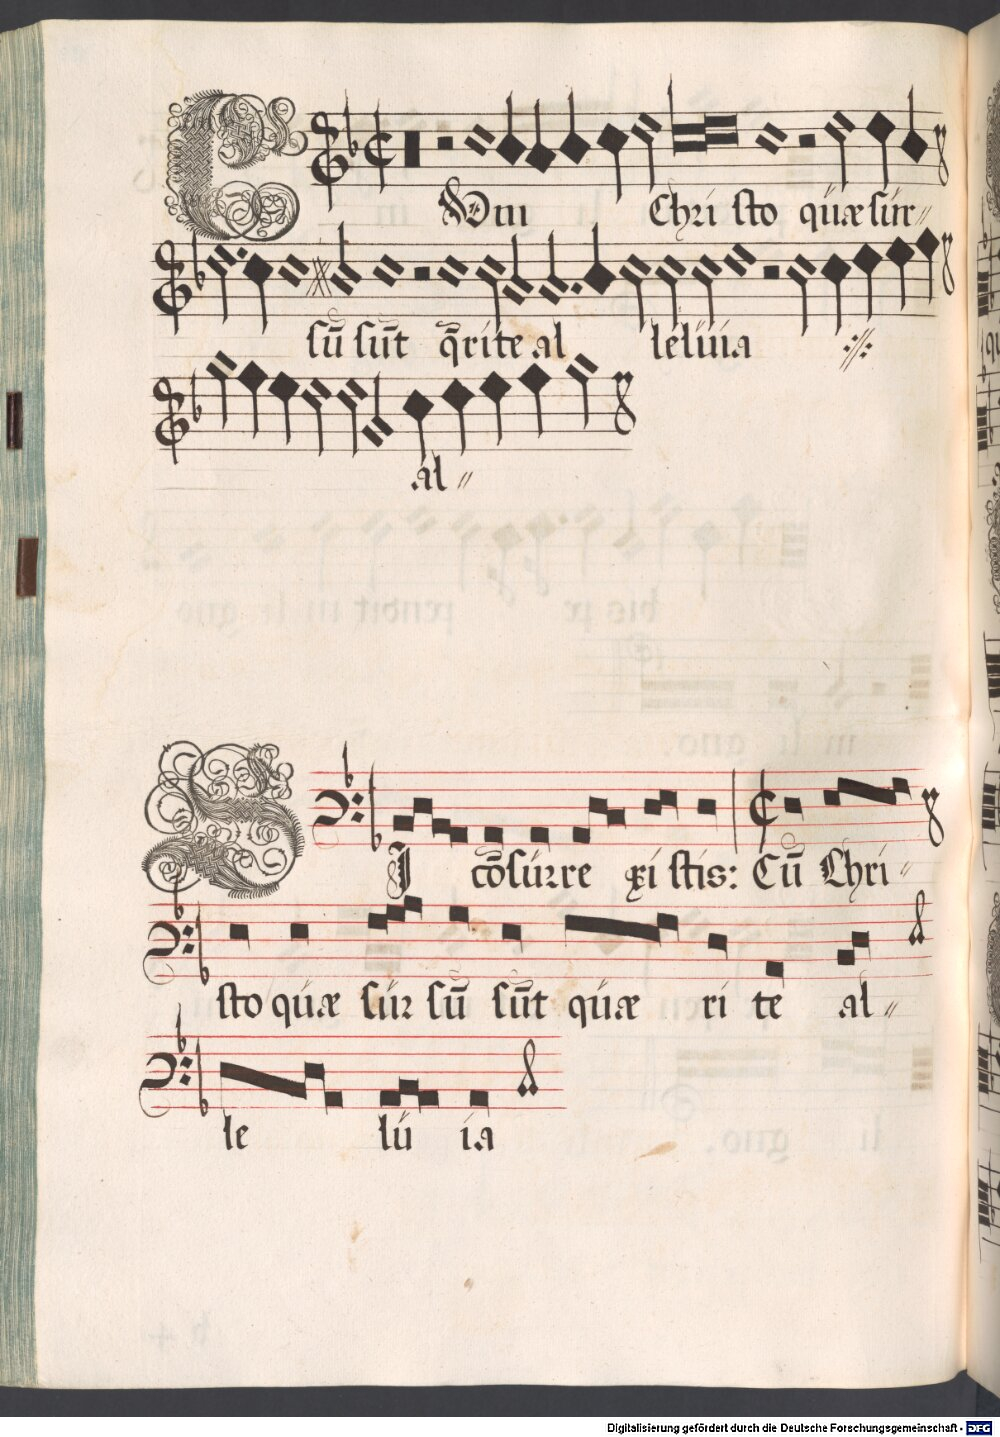 Cum Christo quæ sur〃
sū sūt q̄rite al leluia ·//·
al〃
SI cōsurre xi stis: Cū Chri〃
sto quæ sur sū sūt quæ ri te al〃
le lu ia
Digitalisierung gefördert durch die Deutsche Forschungsgemeinschaft - DFG